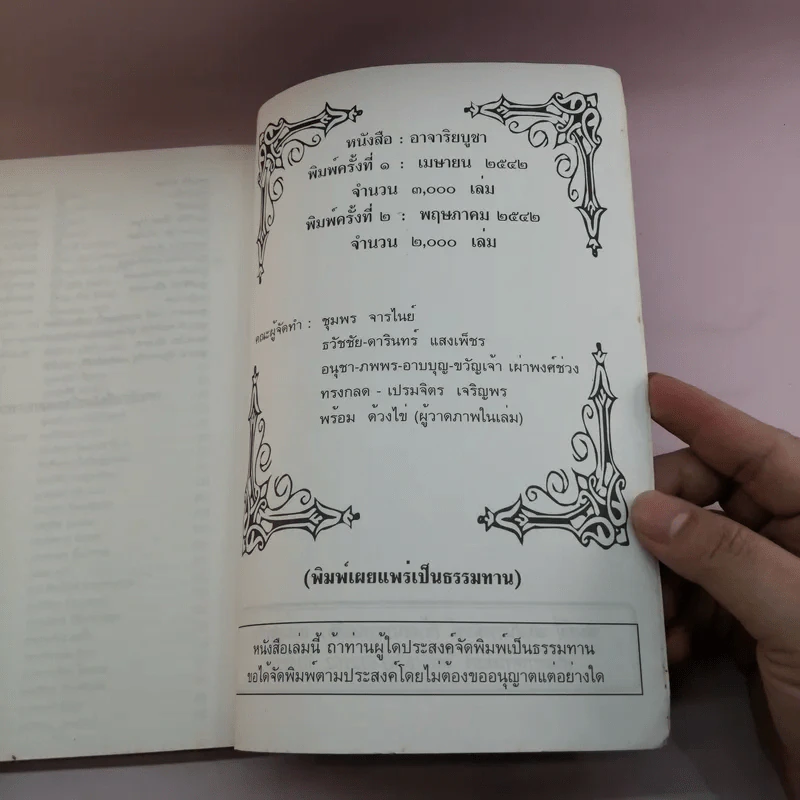 หนังสือ : อาจาริยบูชา
พิมพ์ครั้งที่ ๑ : เมษายน ๒๕๔๒
จำนวน ๓,๐๐๐ เล่ม
พิมพ์ครั้งที่ ๒ : พฤษภาคม ๒๕๔๒
จำนวน ๒,๐๐๐ เล่ม
คณะผู้จัดทำ : ชุมพร จารไนย์
ธวัชชัย-ดารินทร์ แสงเพ็ชร
อนุชา-ภพพร-อาบบุญ-ขวัญเจ้า เผ่าพงศ์ช่วง
ทรงกลด - เปรมจิตร เจริญพร
พร้อม ด้วงไข่ (ผู้วาดภาพในเล่ม)
(พิมพ์เผยแพร่เป็นธรรมทาน)
หนังสือเล่มนี้ ถ้าท่านผู้ใดประสงค์จัดพิมพ์เป็นธรรมทาน
ขอได้จัดพิมพ์ตามประสงค์โดยไม่ต้องขออนุญาตแต่อย่างใด